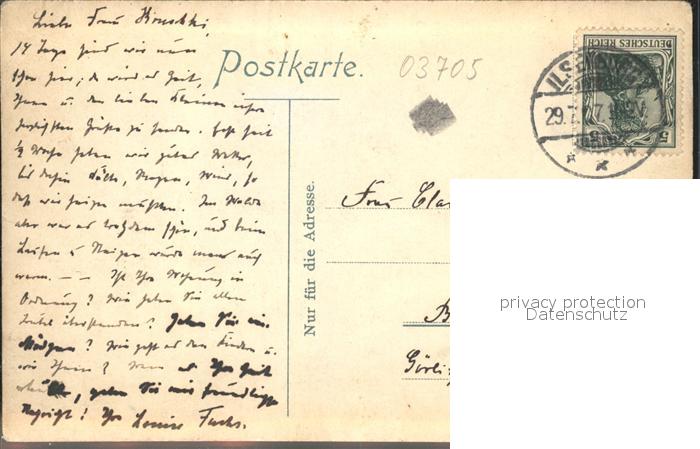 Liebe Frau
14 Tage sind wir nun
schon hier; da wird es Zeit,
Ihnen u. den lieben Kleinen
herzlichsten Grüße zu senden. Erst seit
½ Woche haben wir gutes Wetter,
bis dahin Kälte, Regen, Wind, so
daß wir heizen mußten. Im Walde
aber war es trotzdem schön, und beim
Laufen u. Steigen wurde man auch
warm. — — Ist Ihre Wohnung in
Ordnung? Wie haben Sie allen
Trubel überstanden? Haben Sie ein
Mädchen? Wie geht es den Kindern u.
wie Ihnen? Wenn es Ihre Zeit
erlaubt, geben Sie mir freundlichst
Nachricht! Ihre Louise Fuchs.
Postkarte.
03705
Nur für die Adresse.
DEUTSCHES REICH
5 5
29.7.
Frau Cla
B
Görli
privacy protection
Datenschutz